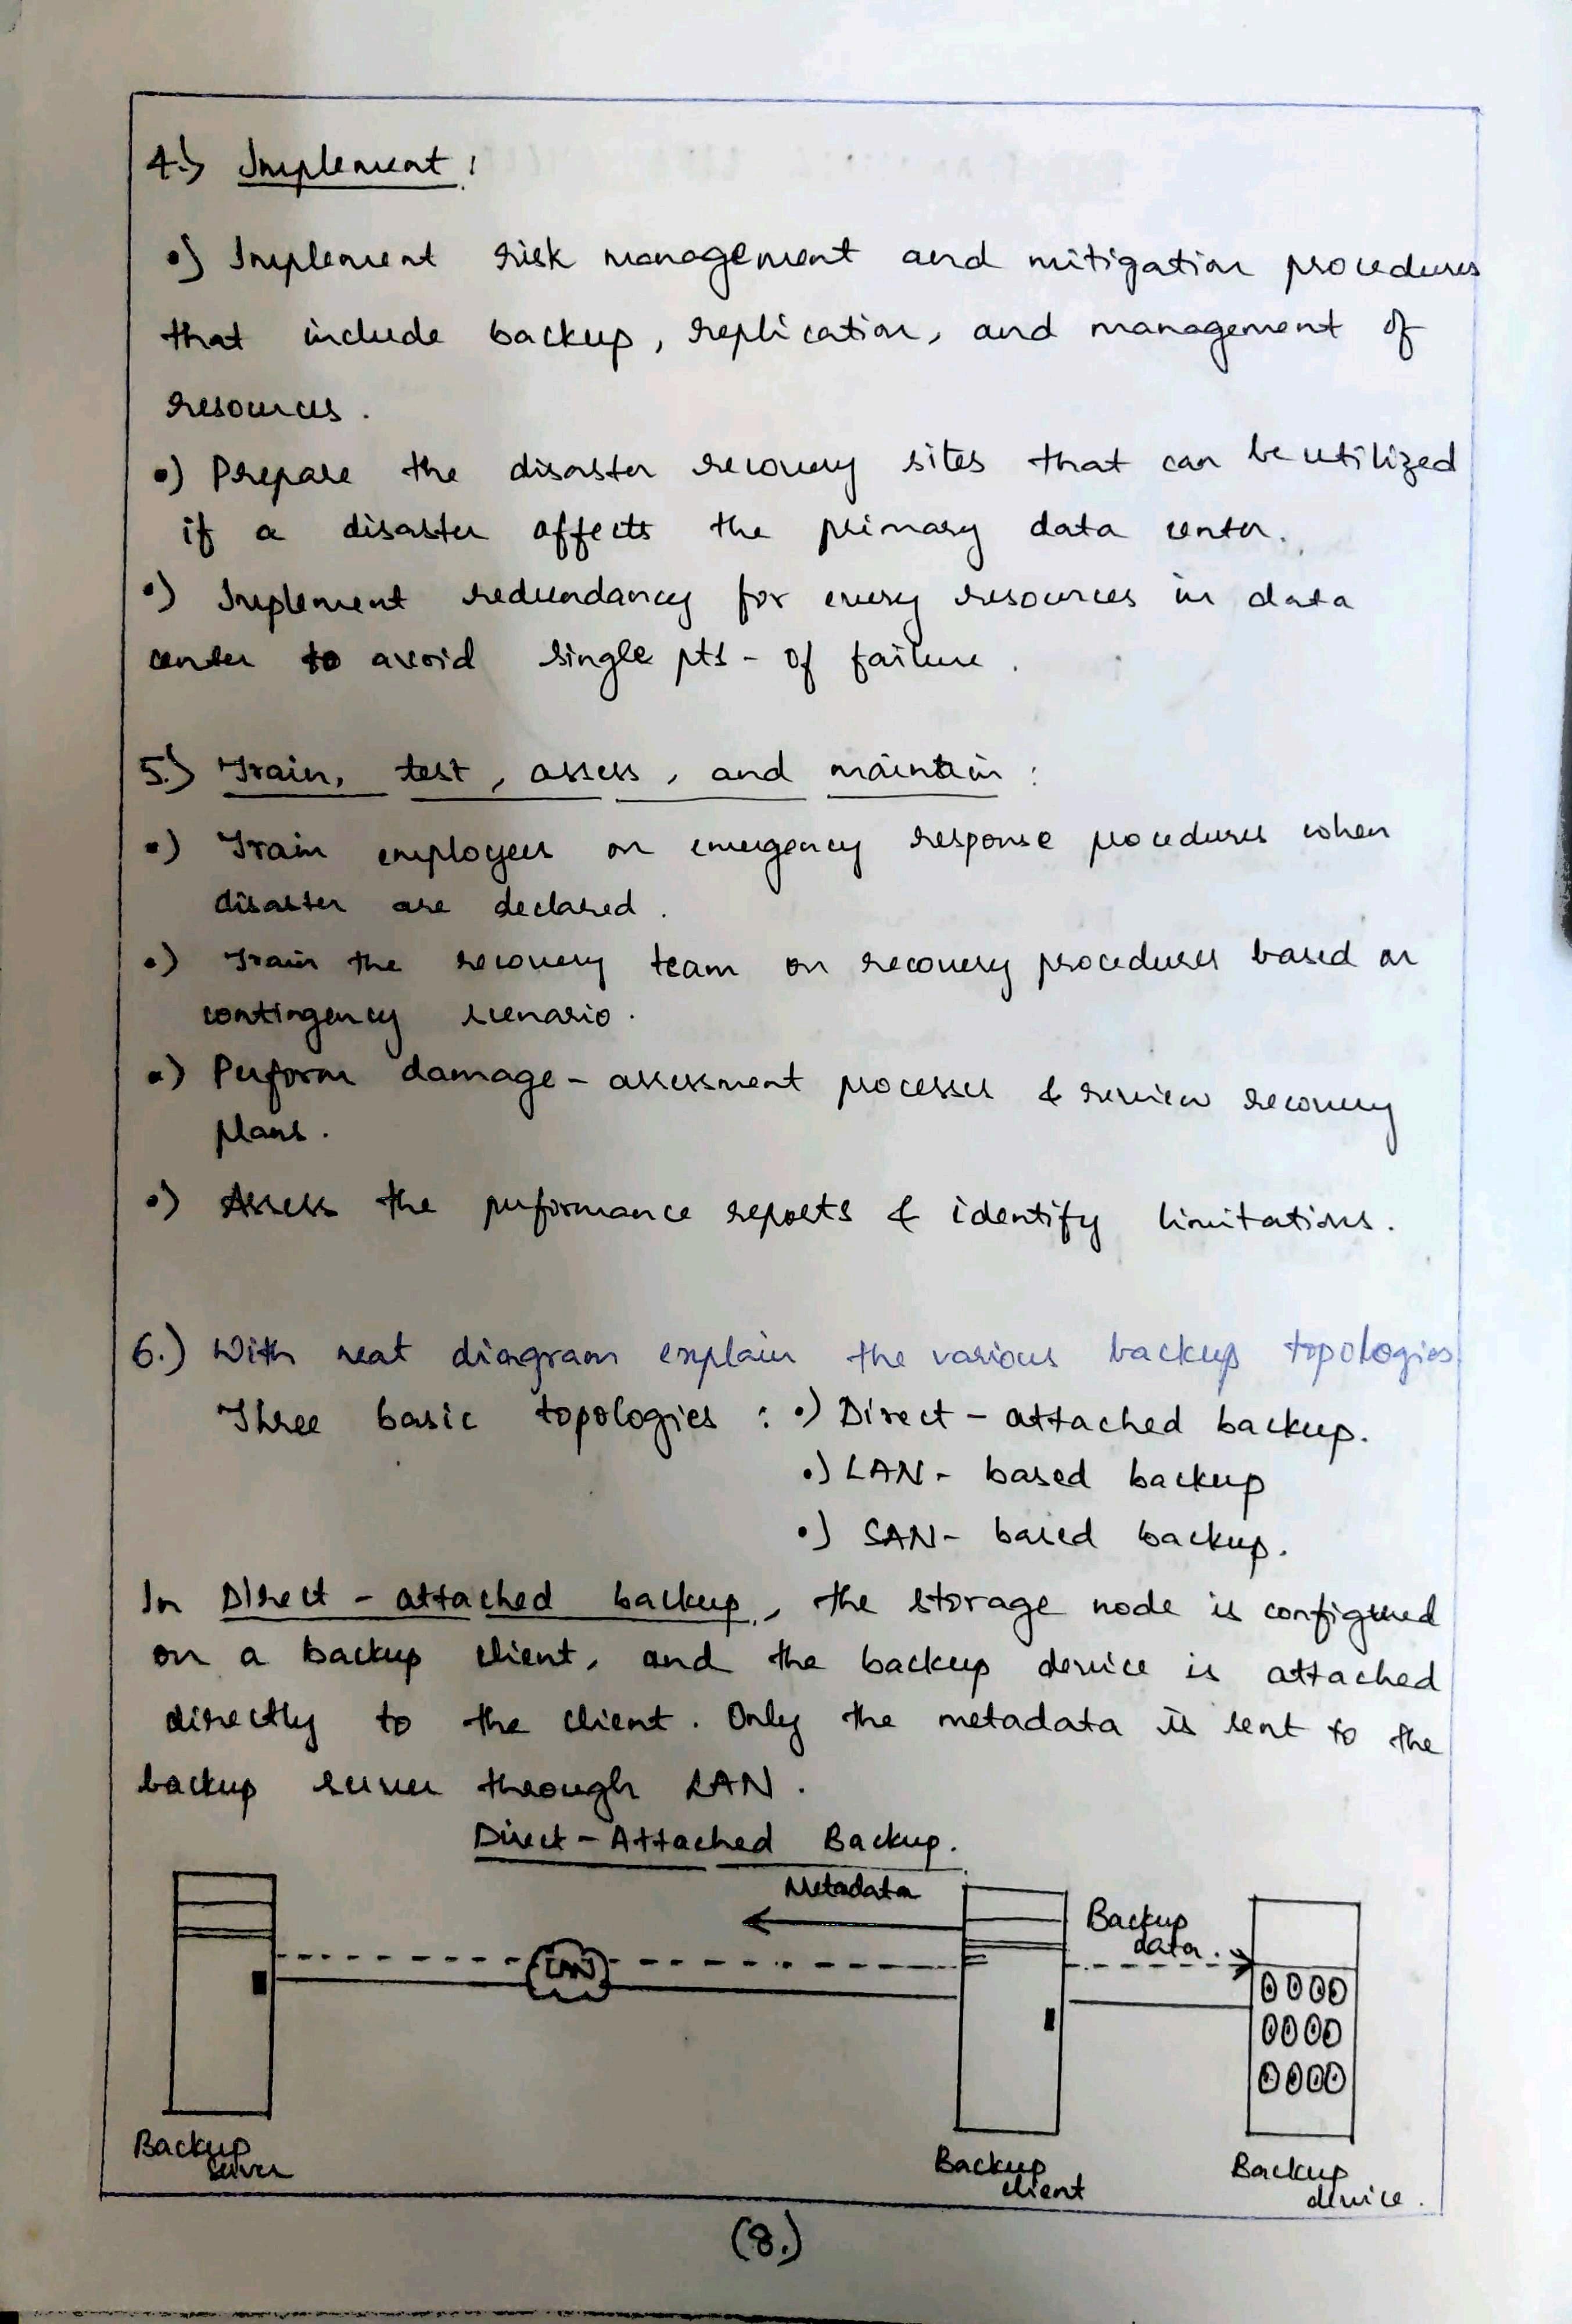 4.) Implement :
•) Implement risk management and mitigation procedures
that include backup, replication, and management of
resources.
•) Prepare the disaster recovery sites that can be utilized
if a disaster affects the primary data center.
•) Implement redundancy for every resources in data
center to avoid single pts - of failure.
5.) Train, test, assess, and maintain :
•) Train employees on emergency response procedures when
disaster are declared.
•) Train the recovery team on recovery procedures based on
contingency scenario.
•) Perform damage - assessment processes & review recovery
plans.
•) Assess the performance reports & identify limitations.
6.) With neat diagram explain the various backup topologies
Three basic topologies : •) Direct - attached backup.
•) LAN - based backup
•) SAN - based backup.
In Direct - attached backup, the storage node is configured
on a backup client, and the backup device is attached
directly to the client. Only the metadata is sent to the
backup server through LAN.
Direct - Attached Backup.
Metadata
Backup
data.
LAN
Backup
server
Backup
client
Backup
device.
(8.)